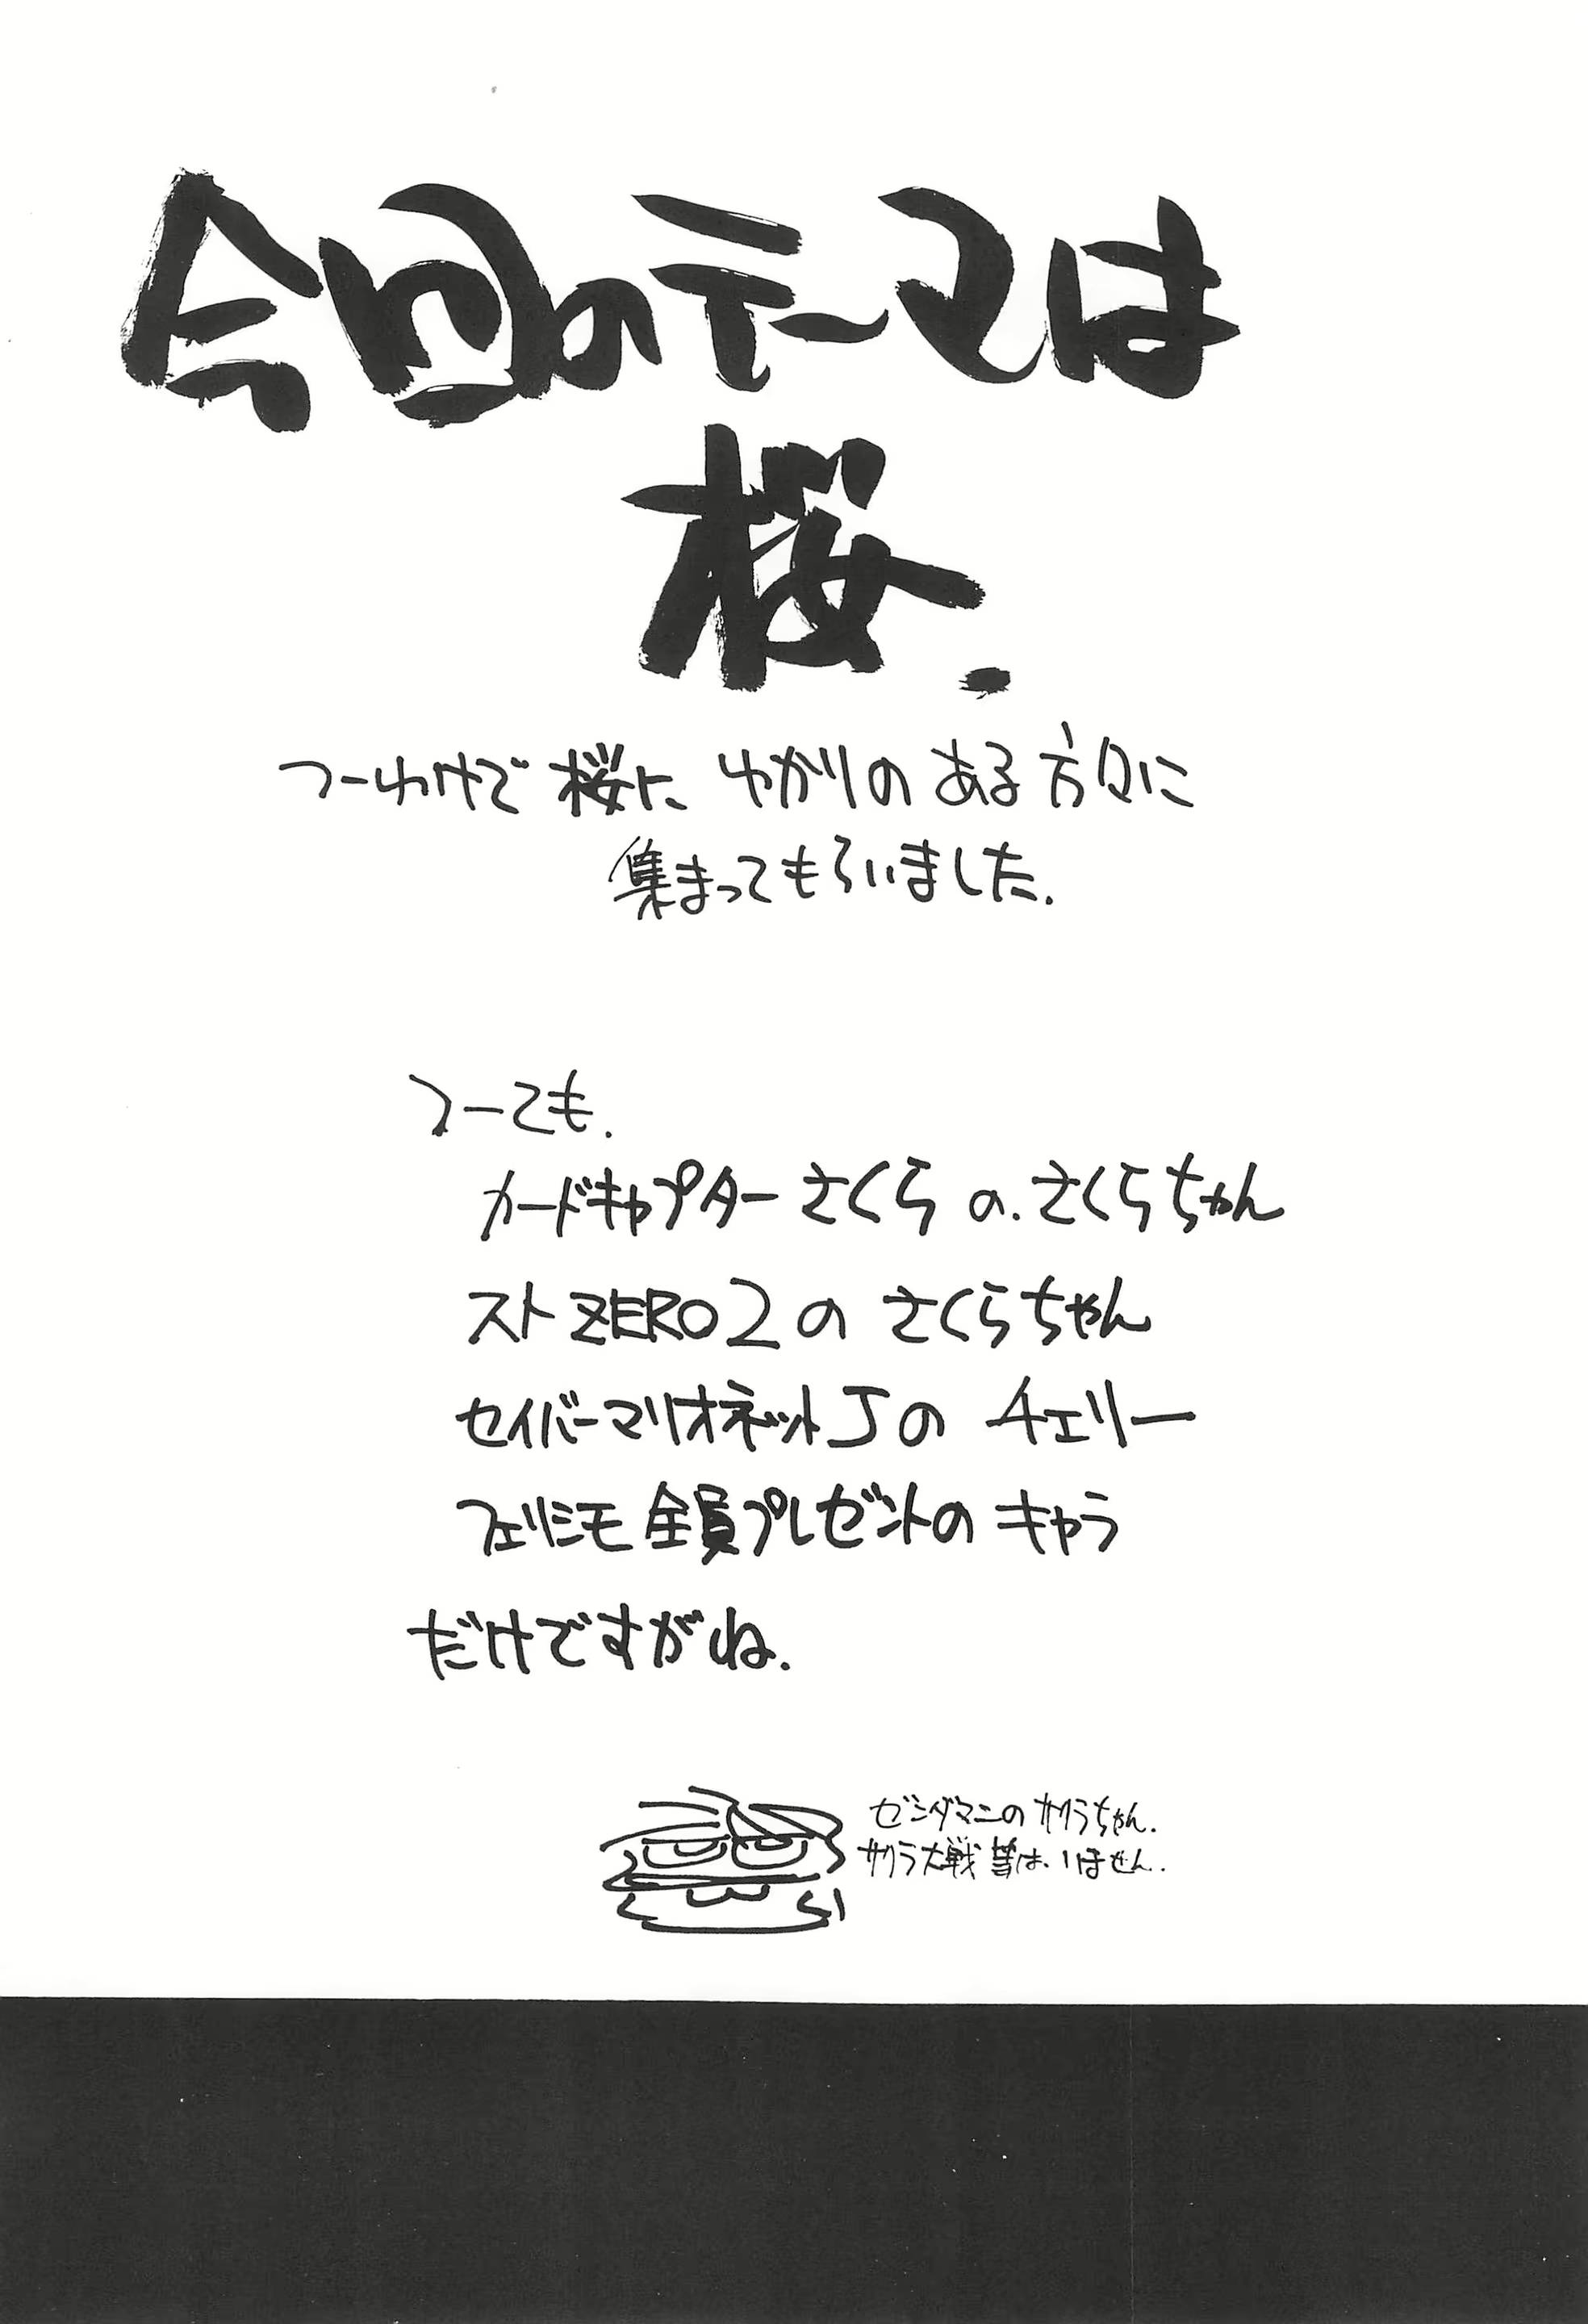 今回のテーマは
桜.
つーわけで 桜に ゆかりの ある 方々に
集まってもらいました.
つーても.
カードキャプターさくら の. さくらちゃん
ストZERO2の さくらちゃん
セイバーマリオネットJの チェリー
フェリシモ 全員プレゼントの キャラ
だけですがね.
ゼンダマンの サクラちゃん.
サクラ大戦 等は. いません.